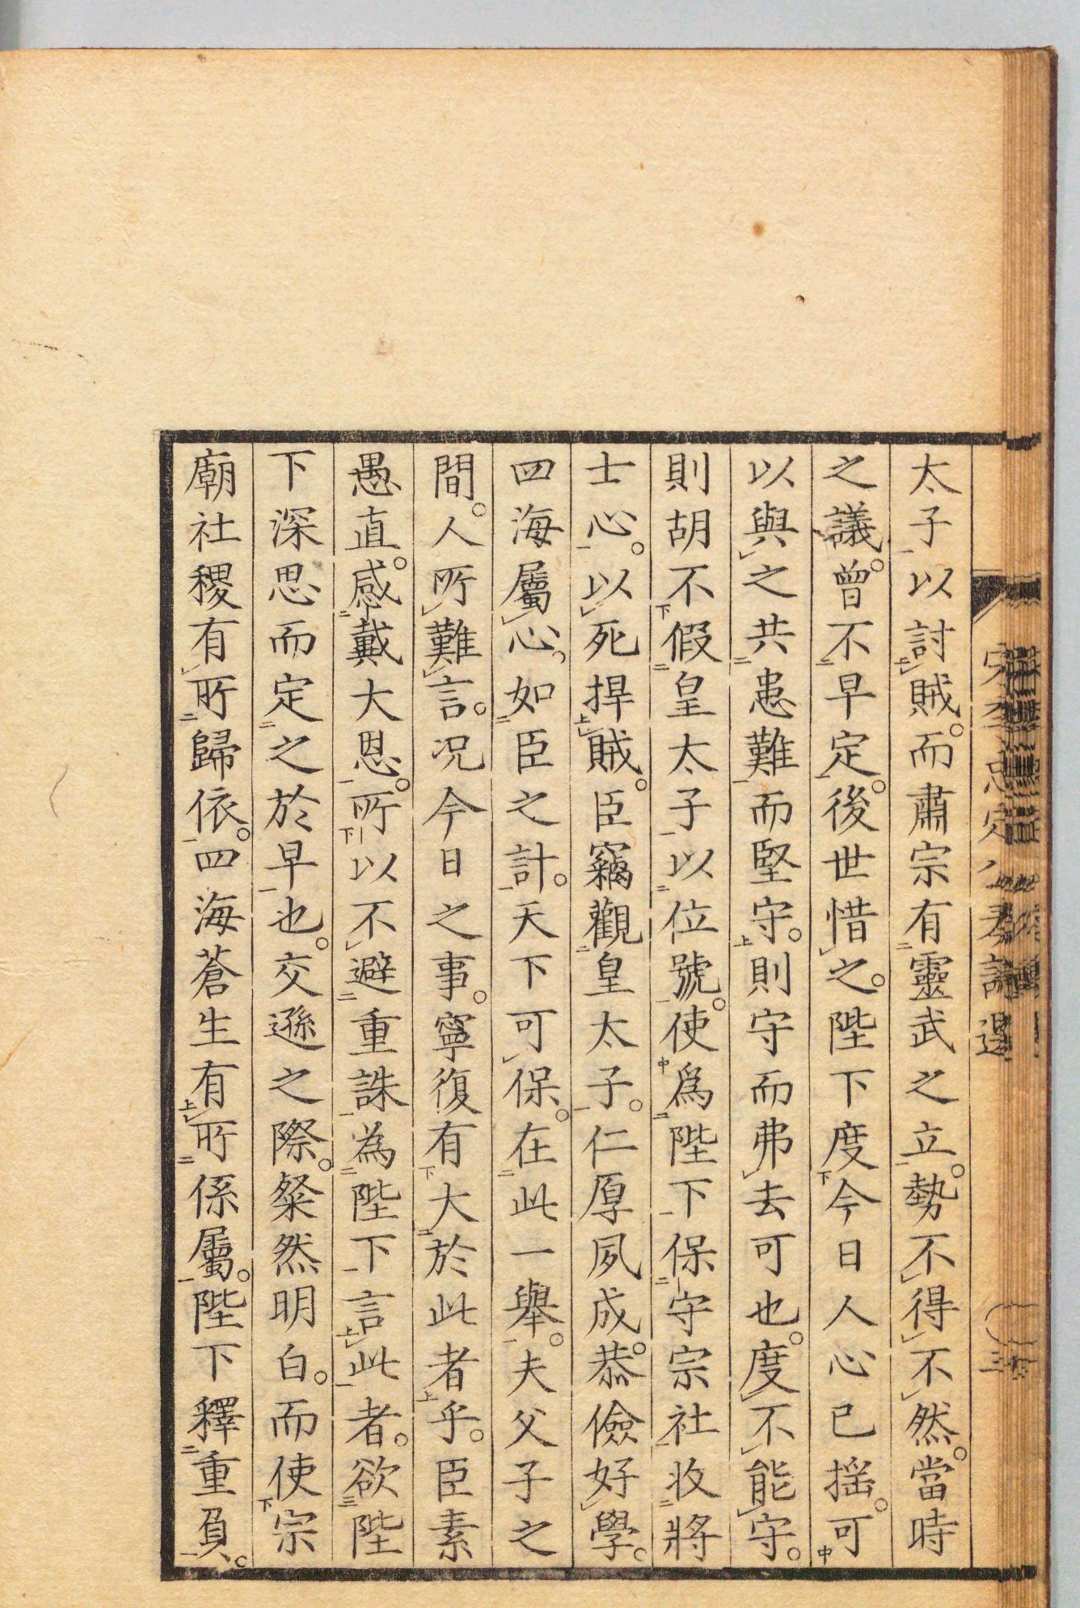 太子以討賊。而肅宗有靈武之立。勢不得不然。當時
之議。曾不早定。後世惜之。陛下度今日人心已搖。可
以與之共患難而堅守。則守而弗去可也。度不能守。
則胡不假皇太子以位號。使爲陛下保守宗社收將
士心。以死捍賊。臣竊觀皇太子。仁厚夙成。恭儉好學。
四海屬心。如臣之計。天下可保。在此一舉。夫父子之
間。人所難言。況今日之事。寧復有大於此者乎。臣素
愚直。感戴大恩。所以不避重誅為陛下言此者。欲陛
下深思而定之於早也。交遜之際。粲然明白。而使宗
廟社稷有所歸依。四海蒼生有所係屬。陛下釋重負。